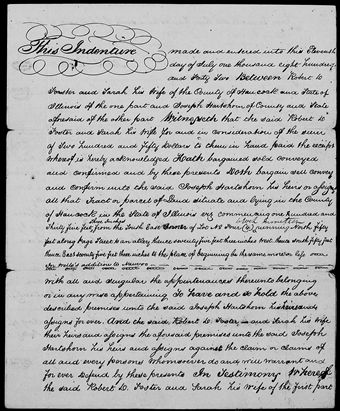 This Indenture made and entered into this Eleventh
day of July one thousand eight hundred
and Forty Two Between Robert D
Foster and Sarah his Wife of the County of Hancock and State of
Illinois of the one part and Joseph Hartshorn of County and State
aforesaid of the other part Witnesseth that the said Robert D
Foster and Sarah his Wife for and in consideration of the sum
of Two Hundred and Fifty Dollars to them in hand paid the receipt
whereof is hereby acknowledged Hath bargained sold conveyed
and confirmed and by these presents Doth bargain sell convey
and confirm unto the said Joseph Hartshorn his Heirs or assigns
all that Tract or parcel of Land situate and lying in the County
of Hancock in the State of Illinois viz commencing one hundred and
Thirty five feet from the South East Corner of Lot No Four (4) running North fifty
feet along Page Street to an alley, thence seventy five feet three inches West thence South fifty feet
thence East seventy five feet three inches to the place of beginning
addition to Nauvoo
With all and singular the appurtenances thereunto belonging
or in any wise appertaining To have and to hold the above
described premises unto the said Joseph Hartshorn his heirs and
assigns for ever. And the said Robert D. Foster and Sarah his Wife
their Heirs and assigns the aforesaid premises unto the said Joseph
Hartshorn his Heirs and assigns against the claim or claims of
all and every persons whomsoever do and will warrant and
for ever Defend by these presents In Testimony Whereof
the said Robert D. Foster and Sarah his Wife of the first part